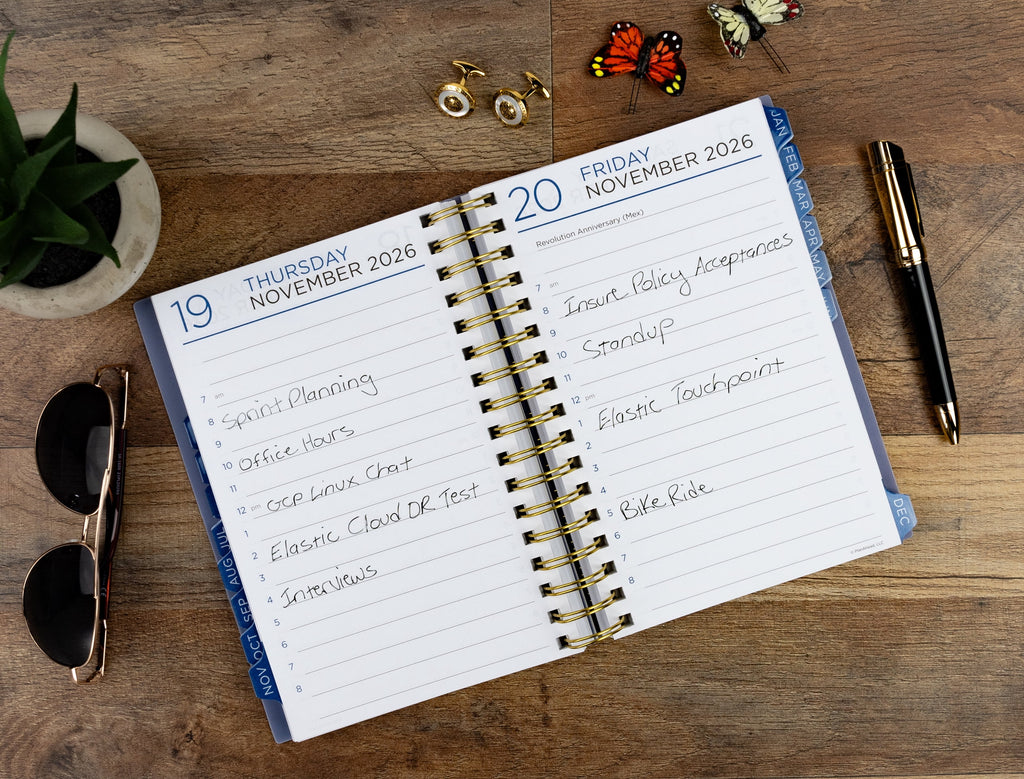 19 THURSDAY
NOVEMBER 2026
7 am
8 Sprint Planning
9
10 Office Hours
11
12 pm GCP Linux Chat
1
2 Elastic Cloud DR Test
3
4 Interviews
5
6
7
8
JUL
AUG
SEP
OCT
NOV
20 FRIDAY
NOVEMBER 2026
Revolution Anniversary (Mex)
7 am
8 Insure Policy Acceptances
9
10 Standup
11
12 pm
1 Elastic Touchpoint
2
3
4
5 Bike Ride
6
7
8
© PlanAhead, LLC
JAN
FEB
MAR
APR
MAY
DEC